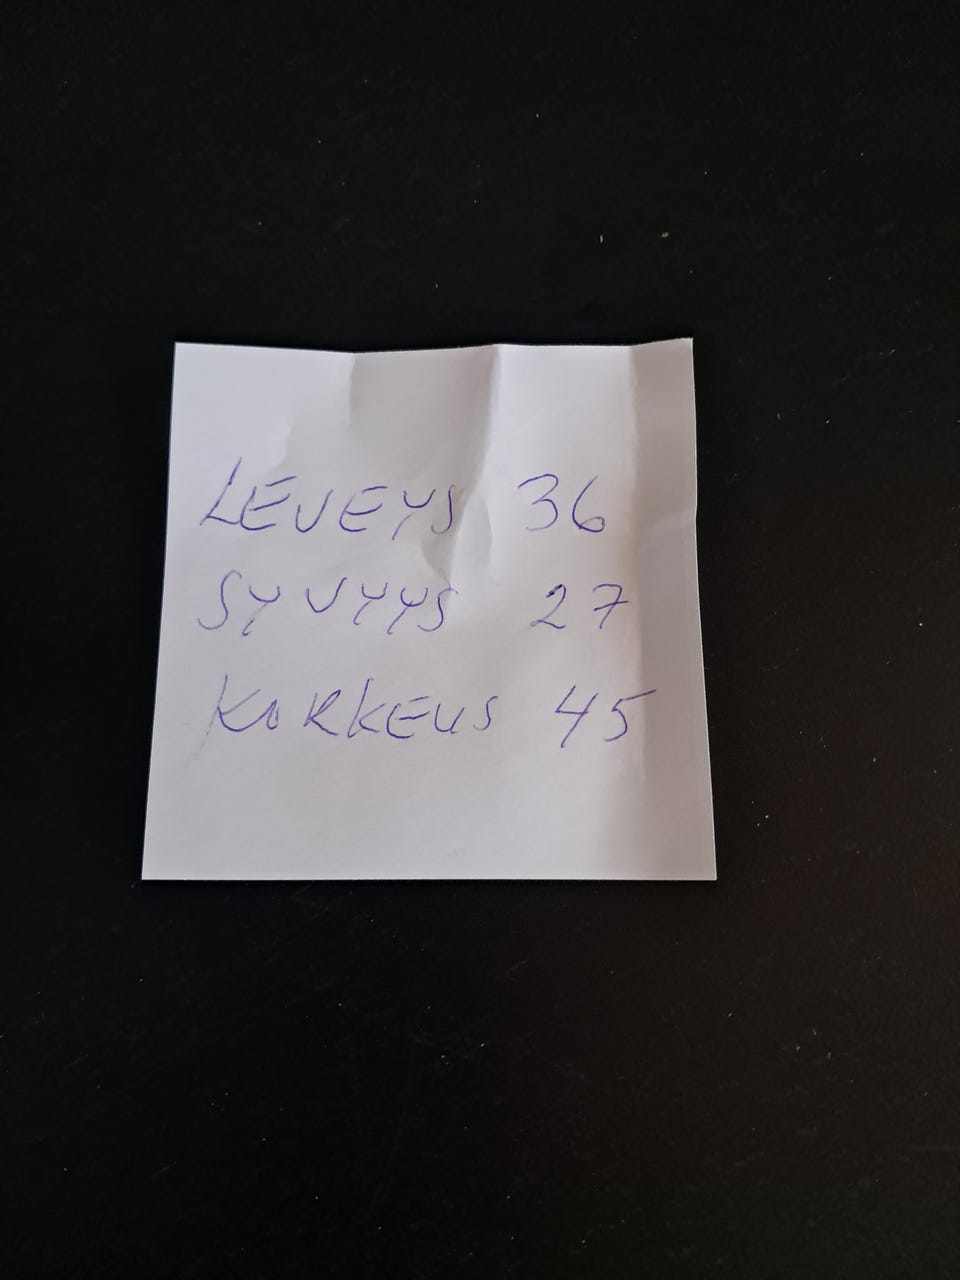 LEVEYS 36
SYVYYS 27
KORKEUS 45